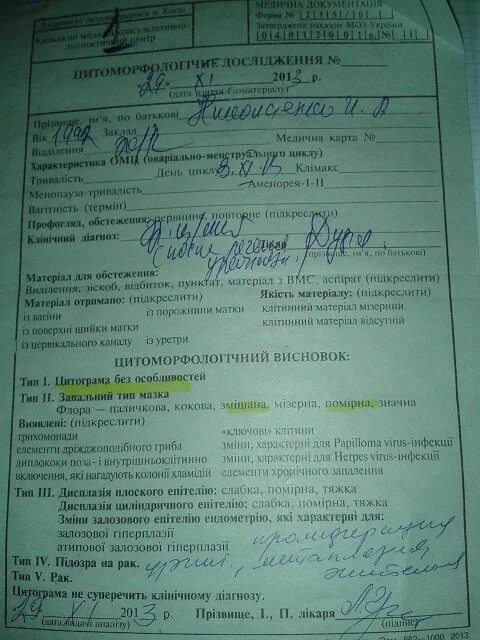 Київський міський консультативно-
діагностичний центр
МЕДИЧНА ДОКУМЕНТАЦІЯ
Форма №
Затверджена наказом МОЗ України
ЦИТОМОРФОЛОГІЧНЕ ДОСЛІДЖЕННЯ №
"29" XI 2013 р.
(дата взяття біоматеріалу)
Прізвище, ім'я, по батькові
Вік 1992 Заклад
Відділення Медична карта №
Характеристика ОМЦ (оваріально-менструального циклу)
Тривалість День циклу Клімакс
Менопауза-тривалість Аменорея-I-II
Вагітність (термін)
Профогляд, обстеження: первинне, повторне (підкреслити)
Клінічний діагноз: Лікар
(прізвище, ім'я, по батькові)
Матеріал для обстеження:
Виділення, зіскоб, відбиток, пунктат, матеріал з ВМС, аспірат (підкреслити)
Матеріал отримано: (підкреслити) Якість матеріалу: (підкреслити)
із вагіни із порожнини матки клітинний матеріал мізерний
із поверхні шийки матки клітинний матеріал відсутній
із цервікального каналу із уретри
ЦИТОМОРФОЛОГІЧНИЙ ВИСНОВОК:
Тип I. Цитограма без особливостей
Тип II. Запальний тип мазка
Флора — паличкова, кокова, змішана, мізерна, помірна, значна
Виявлені: (підкреслити)
трихомонади «ключові» клітини
елементи дріжджоподібного гриба зміни, характерні для Papilloma virus-інфекції
диплококи поза- і внутрішньоклітинно зміни, характерні для Herpes virus-інфекції
включення, які нагадують колонії хламідій елементи хронічного запалення
Тип III. Дисплазія плоского епітелію: слабка, помірна, тяжка
Дисплазія циліндричного епітелію: слабка, помірна, тяжка
Зміни залозового епітелію ендометрію, які характерні для:
залозової гіперплазії
атипової залозової гіперплазії
пролиферация
Тип IV. Підозра на рак. метаплазия
Тип V. Рак. эпителия
Цитограма не суперечить клінічному діагнозу.
"29" XI 2013 р. Прізвище, І., П. лікаря
(дата видачі аналізу) (підпис)